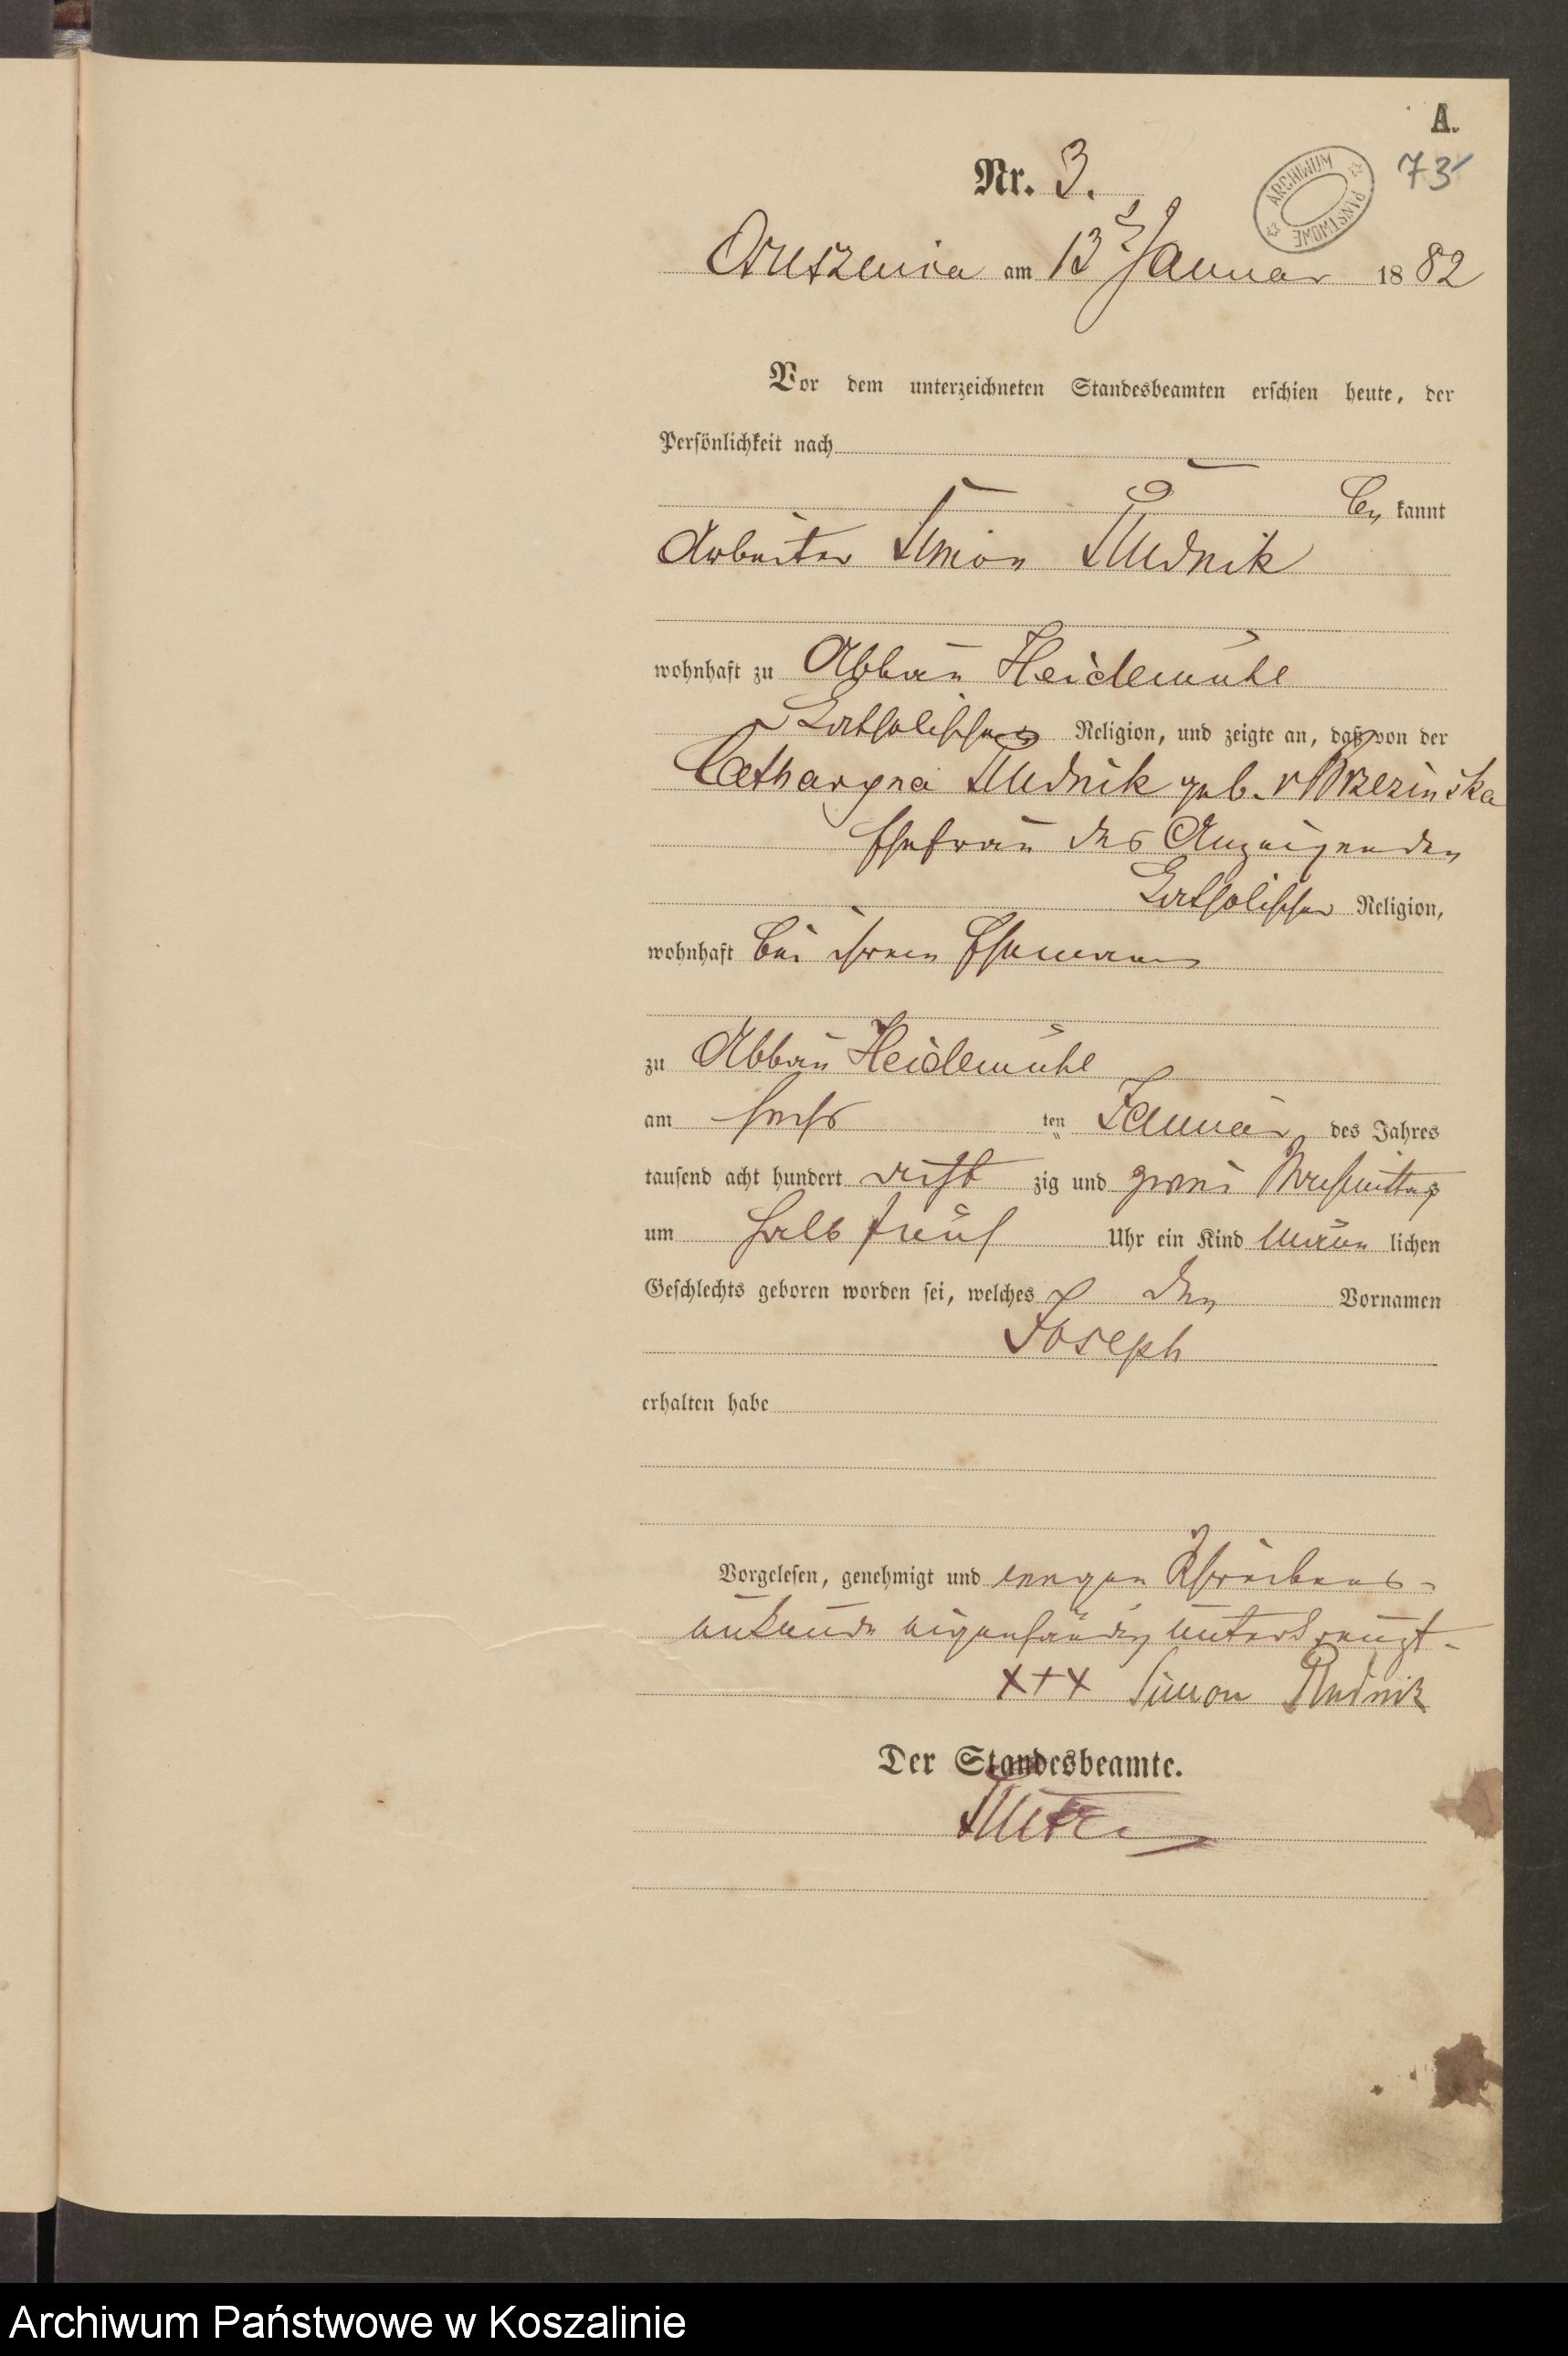 A.
Nr. 3.
73
ARCHIWUM PAŃSTWOWE
am 13 Januar 1882
Vor dem unterzeichneten Standesbeamten erschien heute, der
Persönlichkeit nach
be kannt
Arbeiter Simon Rudnik
wohnhaft zu Abbau Heidemühl
katholischer Religion, und zeigte an, daß von der
Catharyna Rudnik geb. v Brzezinska
Ehefrau des Anzeigenden
katholischer Religion,
wohnhaft bei ihrem Ehemann
zu Abbau Heidemühl
am sechs ten Januar des Jahres
tausend acht hundert acht zig und zwei Nachmittags
um halb fünf Uhr ein Kind männ lichen
Geschlechts geboren worden sei, welches den Vornamen
Joseph
erhalten habe
Vorgelesen, genehmigt und wegen Schreibens-
unkunde eigenhändig unterkreuzt.
+++ Simon Rudnik
Der Standesbeamte.
Archiwum Państwowe w Koszalinie